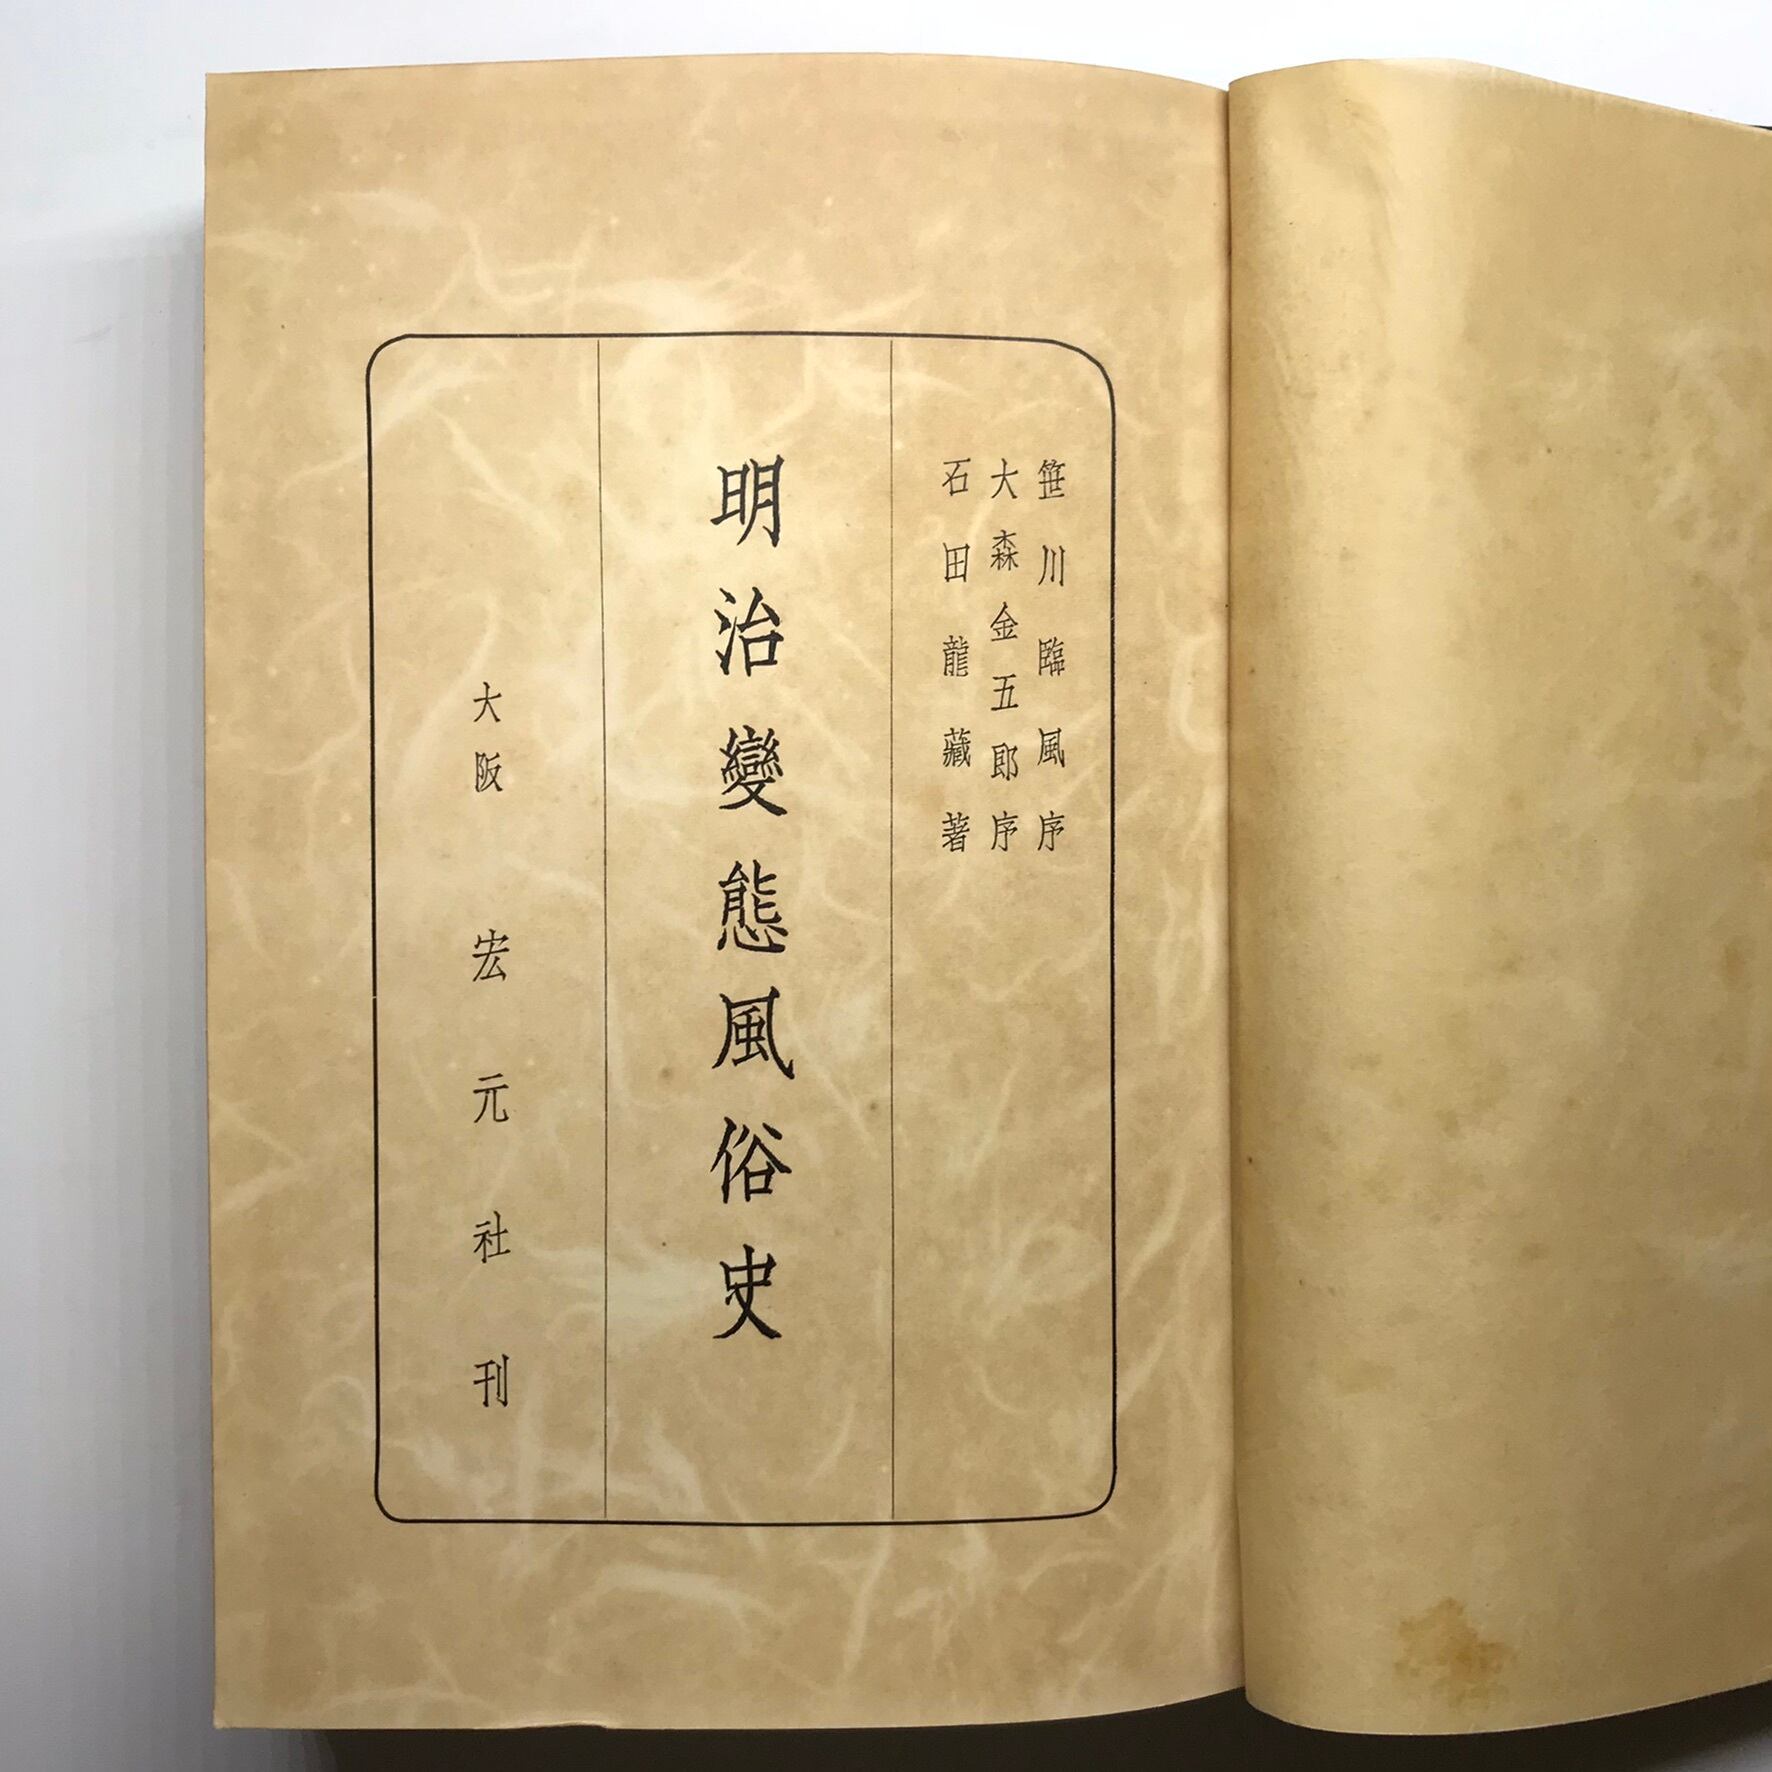 笹川臨風序
大森金五郎序
石田龍藏著
明治變態風俗史
大阪 宏元社刊